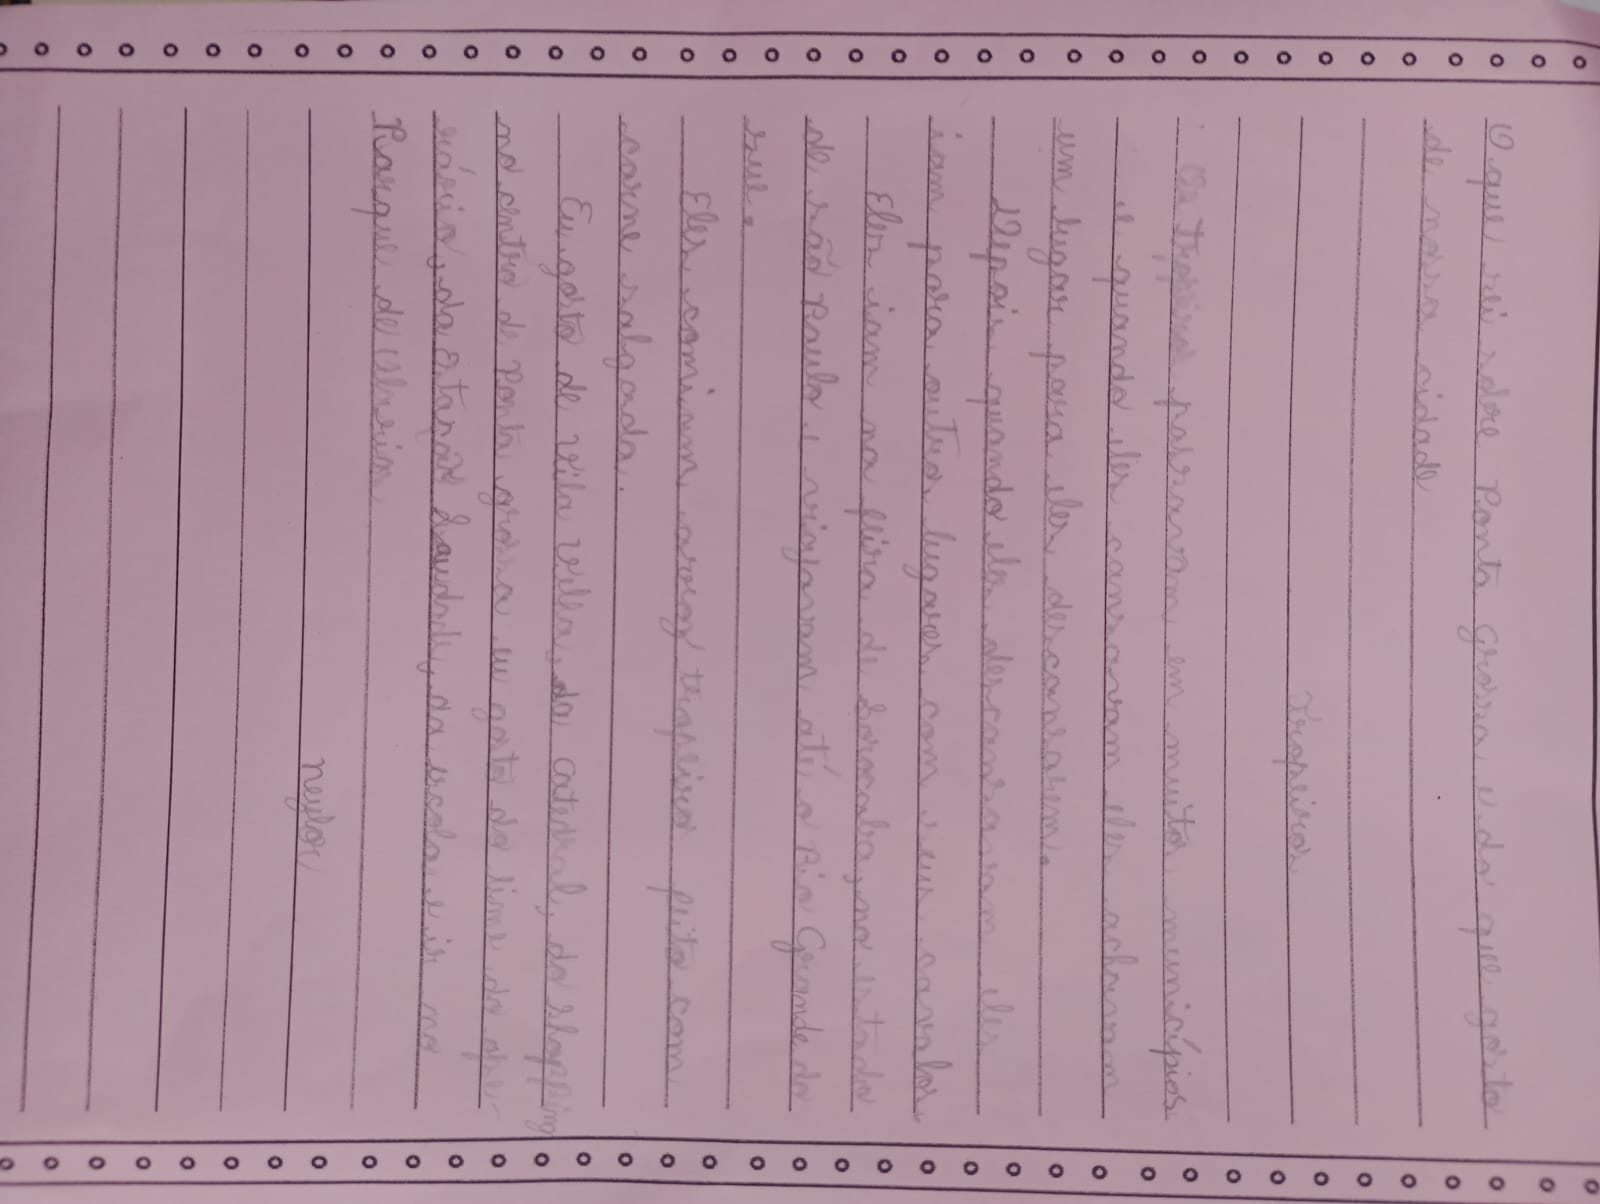 O que sei sobre Ponta Grossa e do que gosto
de nossa cidade
Tropeiros
Os Tropeiros passavam em muitos municípios
e quando eles cansavam eles achavam
um lugar para eles descansarem.
Depois quando eles descansavam eles
iam para outros lugares com seus cavalos.
Eles iam na feira de Sorocaba, no estado
de são Paulo e viajavam até o Rio Grande do
sul.
Eles comiam arroz tropeiro feito com
carne salgada.
Eu gosto de Vila Velha, da catedral, do shopping
no centro de ponta grossa eu gosto do time do ope-
rário, da estação Saudade, da escola e ir no
Parque de Olarias
neylor